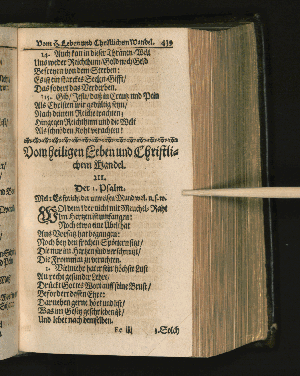 Vom H. Leben und Christlichen Wandel. 439
14. Auch kan in dieser Thränen-Welt
Und weder Reichthum/ Gold noch Geld
Befreyen von dem Sterben:
Es ist ein starckes Seelen-Gifft/
Das fodert das Verderben.
15. Gib/ Jesu/ daß in Creutz und Pein
Als Christen wir gedültig seyn/
Nach deinem Reiche trachten;
Hingegen Reichthum und die Welt
Als schnöden Koht verachten!
Vom heiligen Leben und Christli-
chem Wandel.
211.
Der 1. Psalm.
Mel: Es spricht der unweisen Mund wol. u. s. w.
WOl dem der nicht mit
Im Hertzen ist umfangen:
Noch etwa eine Übel that
Aus Vorsatz hat begangen:
Noch bey den frechen Spöttern sitzt/
Die nur im Hertzen sind verschmitzt/
Die Frommen zu verachten.
2. Vielmehr hat er sein höchste Lust
An recht gesunder Lehre/
Drückt Gottes Wort auff seine Brust/
Befordert dessen Ehre:
Darneben gerne hört und list/
Was im Gesetz geschrieben ist/
Und lebet nach demselben.
Ee iij 3. Solch